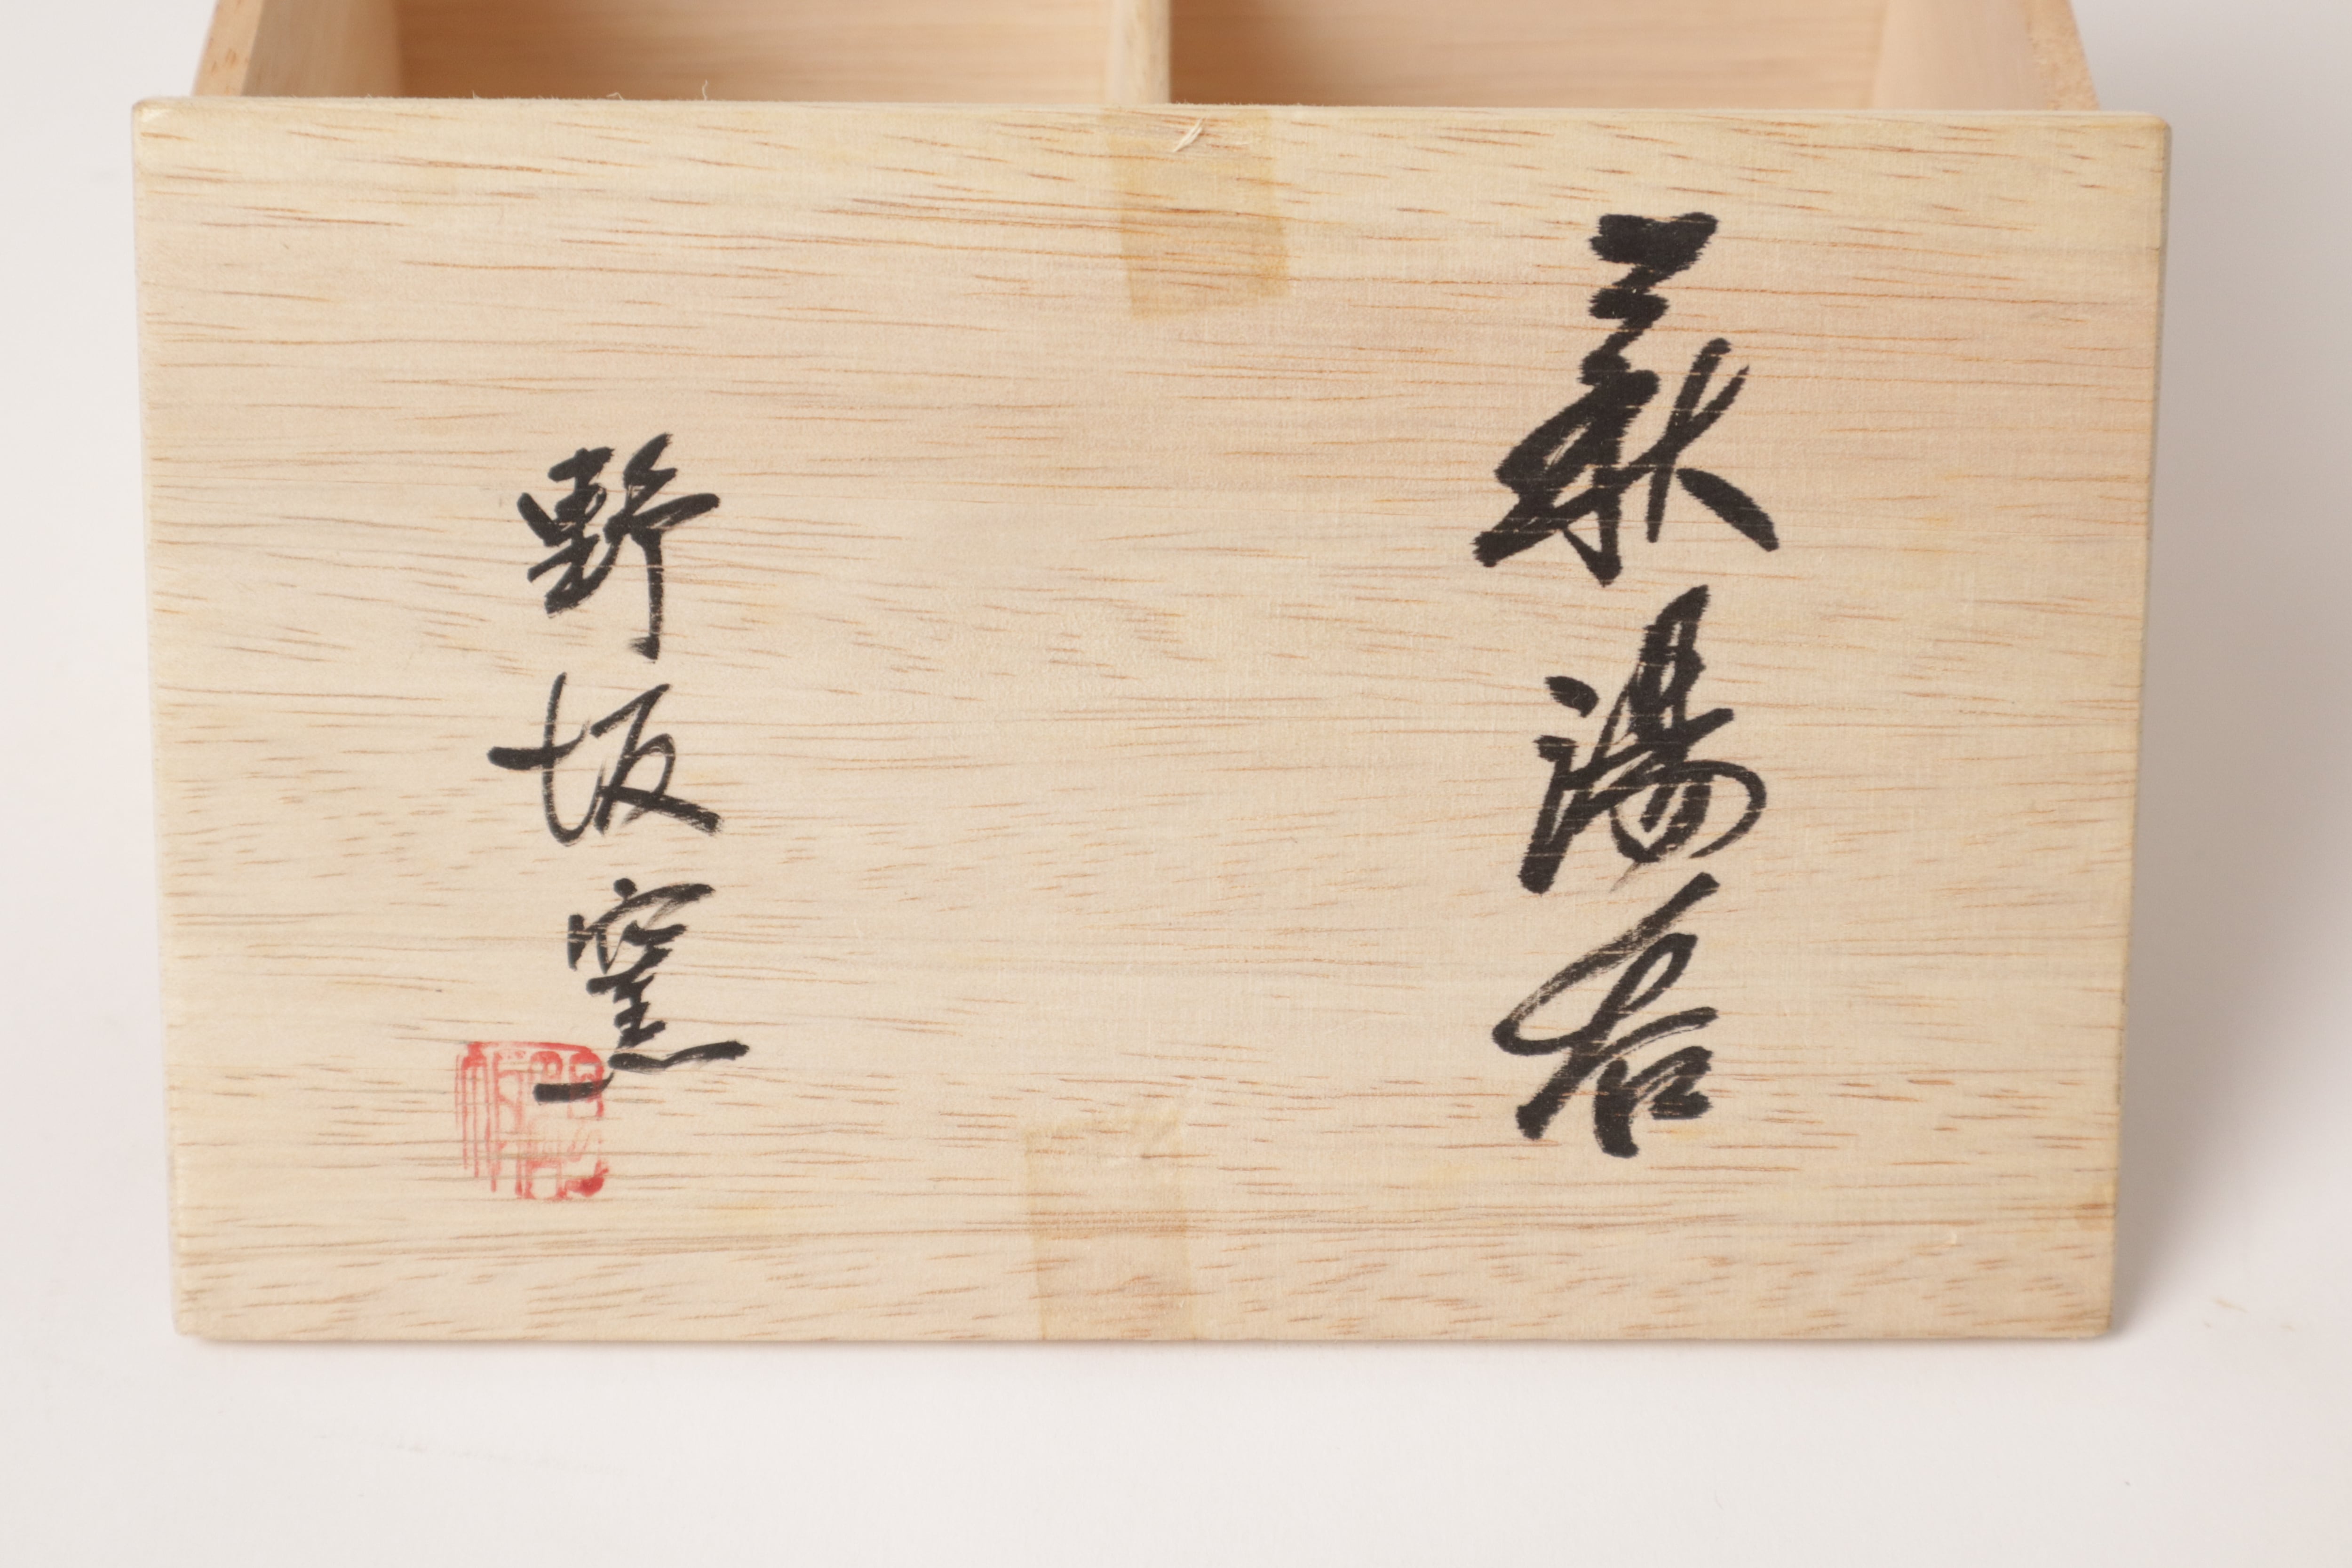 萩湯呑
野坂窯